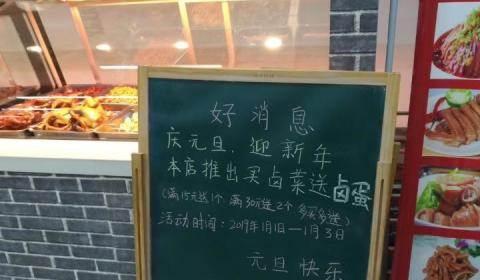 好消息
庆元旦,迎新年
本店推出买卤菜送卤蛋
(满15元送1个 满30元送2个 多买多送)
活动时间:2019年1月1日—1月3日
元旦快乐